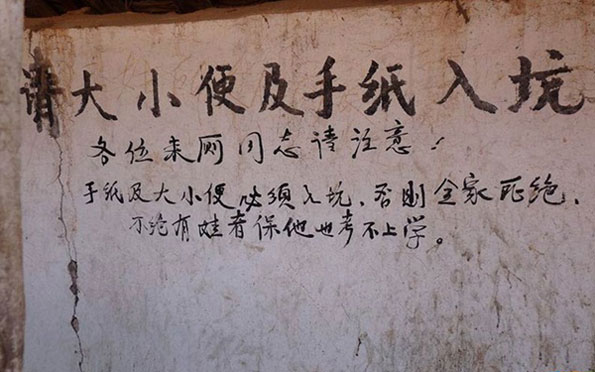 请大小便及手纸入坑
各位来厕同志请注意!
手纸及大小便必须入坑,否则全家死绝、
不绝有娃者保他也考不上学。